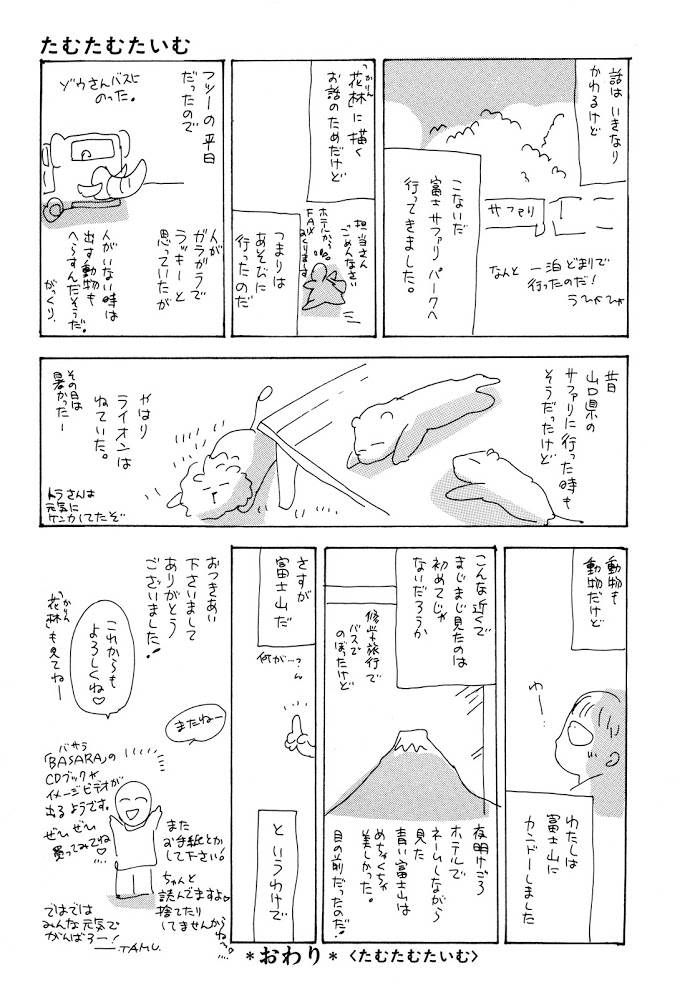 たむたむたいむ
話は いきなり
かわるけど
こないだ
富士サファリパークへ
行ってきました。
サファリ
なんと 一泊どまりで
行ったのだ!
うひゃひゃ
かりん
「花林」に描く
お話のためだけど
担当さん
ごめんなさい
ホテルから
FAX
おくります
つまりは
あそびに
行ったのだ
フツーの平日
だったので
ゾウさんバスに
のった。
人が
ガラガラで
ラッキーと
思っていたが
人がいない時は
出す動物も
へらすんだそうだ。
がっくり。
昔
山口県の
サファリに行った時も
そうだったけど
やはり
ライオンは
ねていた。
その日は
暑かったー
トラさんは
元気に
ケンカしてたぞ
動物も
動物だけど
わー
わたしは
富士山に
カンドーしました
こんな近くで
まじまじ見たのは
初めてじゃ
ないだろうか
修学旅行で
バスで
のぼったけど
夜明けごろ
ホテルで
ネームしながら
見た
青い富士山は
めちゃくちゃ
美しかった。
目の前だったのだ!
さすが
富士山だ
何が…?
というわけで
おつきあい
下さいまして
ありがとう
ございました!
これからも
よろしくね♡
かりん
「花林」も見てねー
またねー
バサラ
「BASARA」の
CDブックや
イメージビデオが
出るようです。
ぜひぜひ
買ってみてね♡
また
お手紙とか
して下さい。
ちゃんと
読んでますよ。
捨てたり
してませんから
ねー
ではでは
みんな元気で
がんばろー!
—TAMU.
*おわり* 〈たむたむたいむ〉